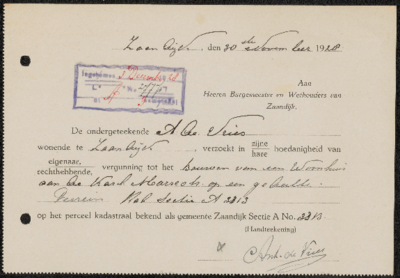 Zaandijk, den 30ste November 1928
Ingekomen 3 December 28
L A No 2/75
Aan
Heeren Burgemeester en Wethouders van
Zaandijk.
De ondergeteekende A. de Vries
wonende te Zaandijk, verzoekt in zijne hare hoedanigheid van
eigenaar, rechthebbende, vergunning tot het bouwen van een Woonhuis
aan de Karl Marxstr. op een gedeelte
Terrein Kad. Sectie A 3313
op het perceel kadastraal bekend als gemeente Zaandijk Sectie A No. 3313
(Handteekening)
Ant. de Vries